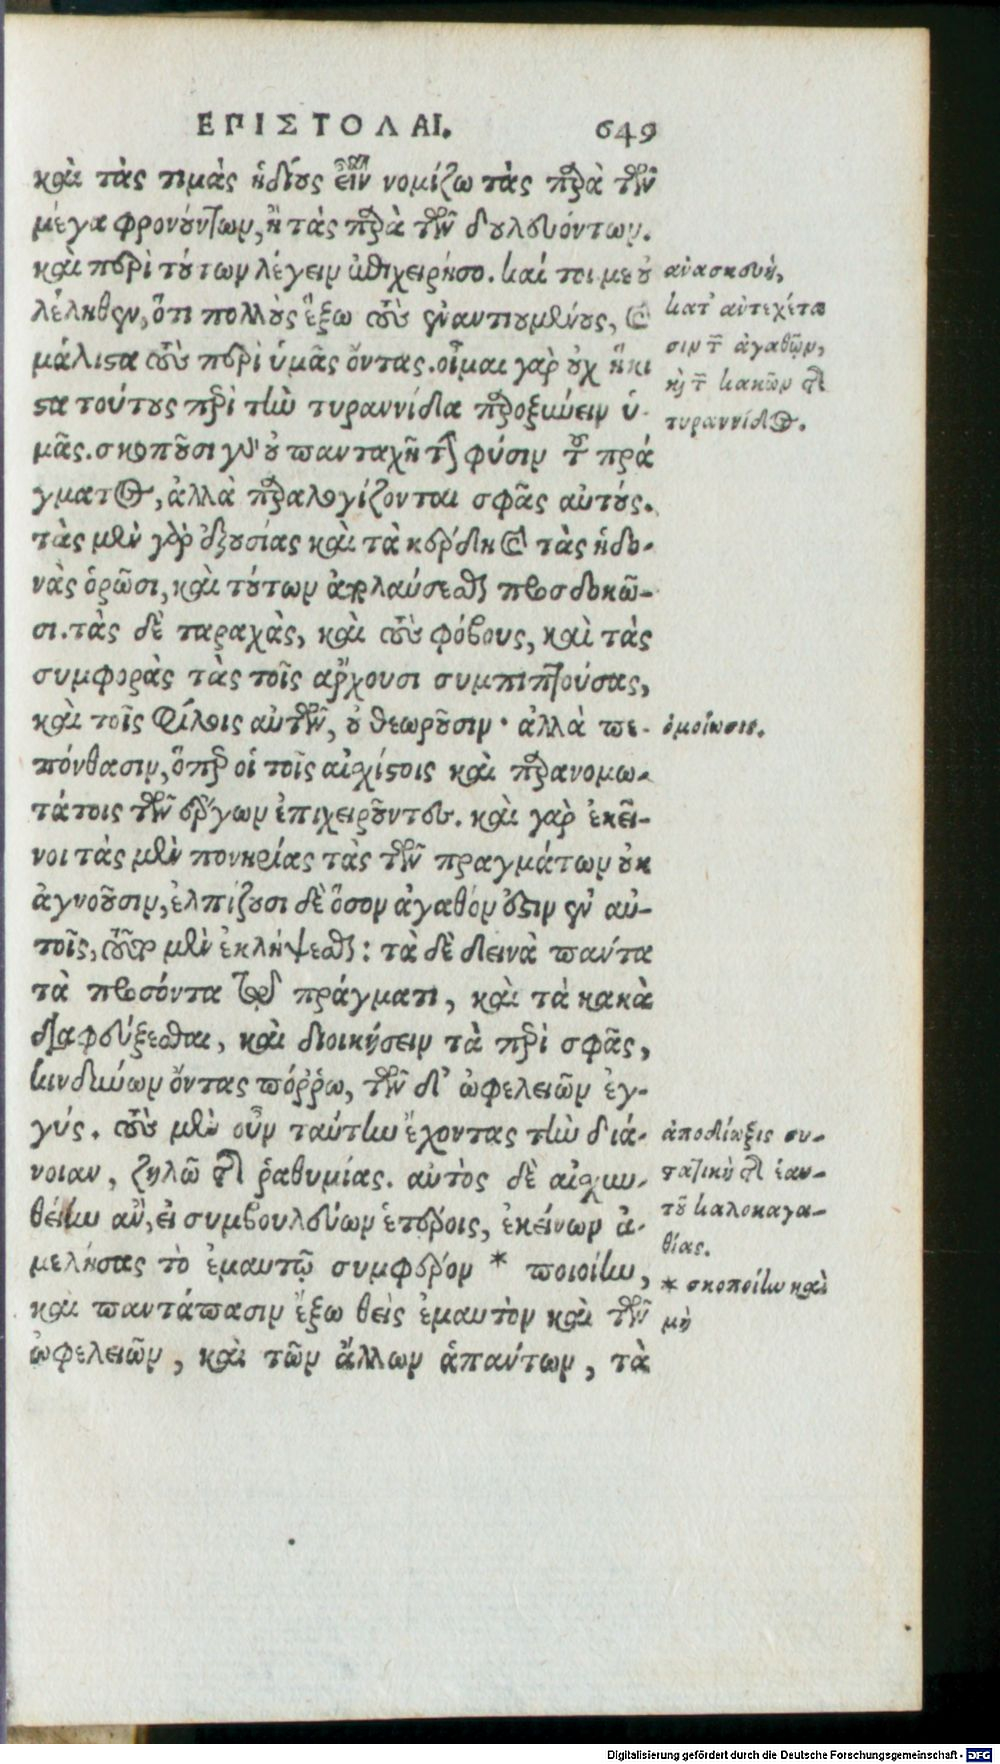 ΕΠΙΣΤΟΛΑΙ. 649
καὶ τὰς τιμὰς ἡδίους εἶναι νομίζω τὰς παρὰ τῶν
μέγα φρονούντων, ἢ τὰς παρὰ τῶν δουλευόντων.
καὶ περὶ τούτων λέγειν ἐπιχειρήσω. καί τοι με οὐ
λέληθεν, ὅτι πολλοὺς ἕξω τοὺς ἐναντιουμένους, καὶ
μάλιστα τοὺς περὶ ὑμᾶς ὄντας. οἶμαι γὰρ οὐχ ἥκι
στα τούτους περὶ τὴν τυραννίδα παροξύνειν ὑ-
μᾶς. σκοποῦσι γὰρ οὐ πανταχῇ τὴν φύσιν τοῦ πρά
γματος, ἀλλὰ παραλογίζονται σφᾶς αὐτούς.
τὰς μὲν γὰρ ἐξουσίας καὶ τὰ κέρδη καὶ τὰς ἡδο-
νὰς ὁρῶσι, καὶ τούτων ἀπολαύσεσθαι προσδοκῶ-
σι. τὰς δὲ ταραχὰς, καὶ τοὺς φόβους, καὶ τὰς
συμφορὰς τὰς τοῖς ἄρχουσι συμπιπτούσας,
καὶ τοῖς φίλοις αὐτῶν, οὐ θεωροῦσιν· ἀλλὰ πε-
πόνθασιν, ὅπερ οἱ τοῖς αἰσχίστοις καὶ παρανομω-
τάτοις τῶν ἔργων ἐπιχειροῦντες. καὶ γὰρ ἐκεῖ-
νοι τὰς μὲν πονηρίας τὰς τῶν πραγμάτων οὐκ
ἀγνοοῦσιν, ἐλπίζουσι δὲ ὅσον ἀγαθόν ἐστιν ἐν αὐ-
τοῖς, τοῦτο μὲν ἐκλήψεσθαι: τὰ δὲ δεινὰ πάντα
τὰ προσόντα τῷ πράγματι, καὶ τὰ κακὰ
διαφεύξεσθαι, καὶ διοικήσειν τὰ περὶ σφᾶς,
κινδύνων ὄντας πόῤῥω, τῶν δ' ὠφελειῶν ἐγ-
γύς. τοὺς μὲν οὖν ταύτην ἔχοντας τὴν διά-
νοιαν, ζηλῶ τῆς ῥαθυμίας. αὐτὸς δὲ αἰσχυν-
θείην ἄν, εἰ συμβουλεύων ἑτέροις, ἐκείνων ἀ-
μελήσας τὸ ἐμαυτῷ συμφέρον * ποιοίην,
καὶ παντάπασιν ἔξω θεὶς ἐμαυτὸν καὶ τῶν
ὠφελειῶν, καὶ τῶν ἄλλων ἁπάντων, τὰ
ἀνασκευή,
κατ' ἀντεξέτα
σιν τῶν ἀγαθῶν,
καὶ τῶν κακῶν τῆς
τυραννίδος.
ὁμοίωσις.
ἀπόδειξις συ-
τατικὴ τῆς ἑαυ-
τοῦ καλοκαγα-
θίας.
* σκοποίην καὶ
μὴ
Digitalisierung gefördert durch die Deutsche Forschungsgemeinschaft - DFG